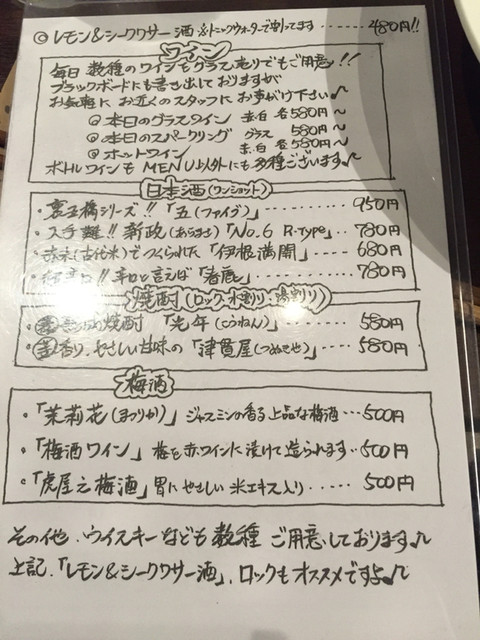 ◎レモン&シークワサー酒 ※トニックウォーターで割ってます……480円!!
ワイン
毎日 数種のワインもグラス売りでもご用意!!
ブラックボードにも書き出しておりますが
お気軽に お近くのスタッフにお声がけ下さい♪
◎本日のグラスワイン 赤・白 各580円〜
◎本日のスパークリング グラス 580円〜
◎ホットワイン 赤・白 各580円〜
ボトルワインもMENU以外にも多種ございます♪
日本酒(ワンショット)
・裏正橋シリーズ!!「五(ファイブ)」……950円
・入手難!! 新政(あらまさ)「No.6 R-type」…780円
・赤米(古代米)でつくられた「伊根満開」……680円
・辛口と言えば「春鹿」……780円
焼酎(ロック、水割り、湯割り)
焼酎「光年(こうねん)……580円
香り、やさしい甘味の「津貫屋(つぬきや)」……580円
梅酒
・「茉莉花(まつりか)」ジャスミンの香る上品な梅酒…500円
・「梅酒ワイン」梅を赤ワインに漬けて造られます…500円
・「虎屋之梅酒」胃にやさしい 米エキス入り……500円
その他、ウイスキーなども数種 ご用意しております♪
上記、「レモン&シークワサー酒」、ロックもオススメですよ♪